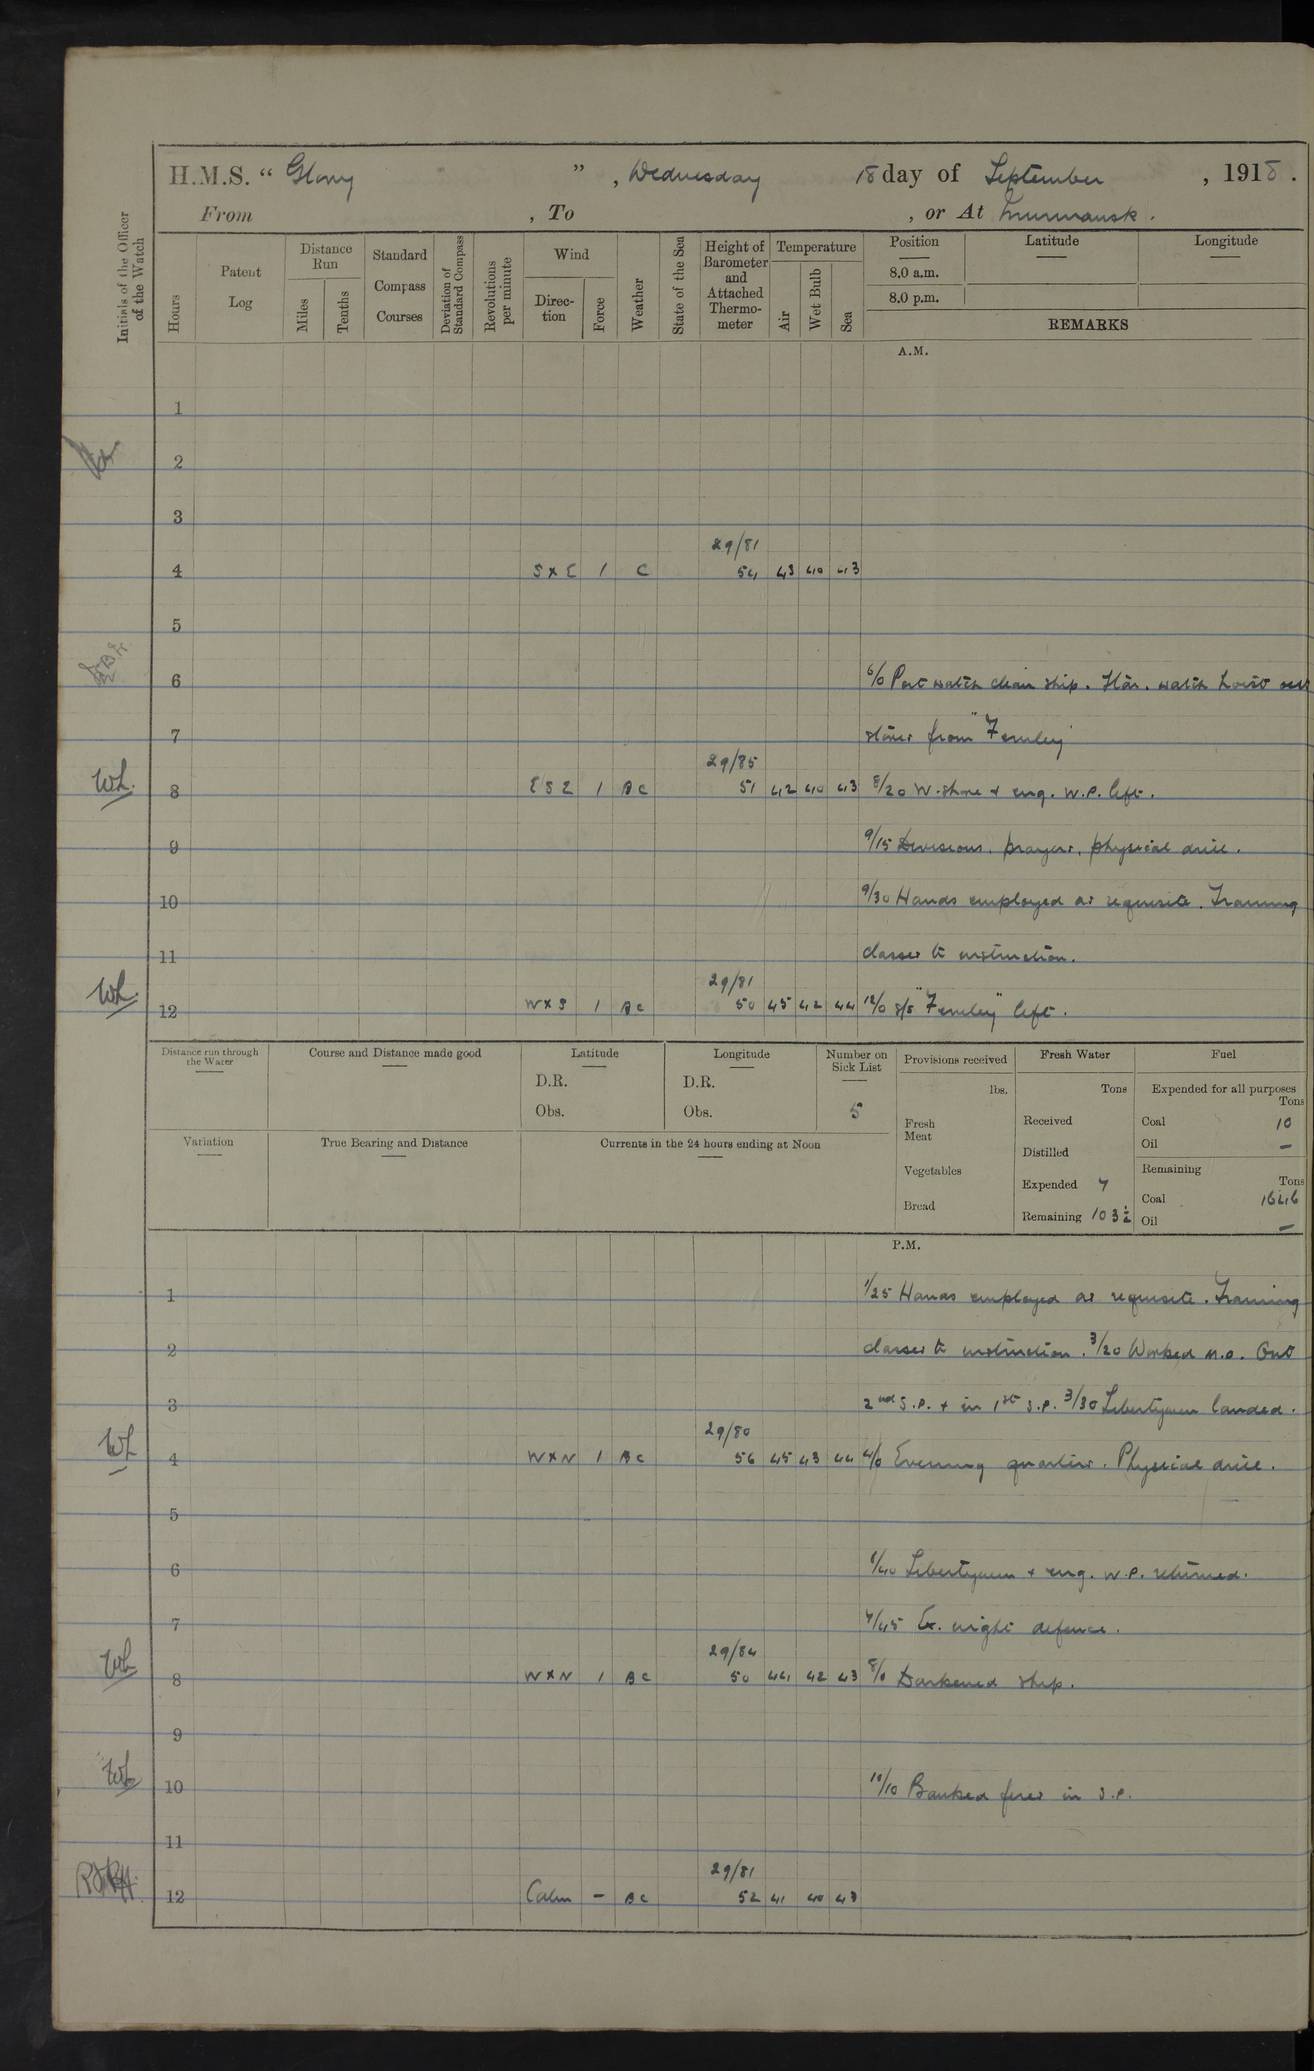 H.M.S. “ Glory ” , Wednesday 18 day of September , 1918 .
From , To , or At Murmansk .
Initials of the Officer of the Watch
Hours
Patent Log
Distance Run
Miles
Tenths
Standard Compass Courses
Deviation of Standard Compass
Revolutions per minute
Wind
Direc-tion
Force
Weather
State of the Sea
Height of Barometer and Attached Thermo-meter
Temperature
Air
Wet Bulb
Sea
Position Latitude Longitude
8.0 a.m.
8.0 p.m.
REMARKS
A.M.
1
2
3
29/81
4 S x E 1 C 54 43 40 43
5
6 6/0 Port watch clean ship. Star. watch hoist out
7 stores from "Fernley"
29/85
8 WL. E S E 1 BC 51 42 40 43 8/20 W. shore & eng. W.P. left.
9 9/15 Divisions, prayers, physical drill.
10 9/30 Hands employed as requisite. Training
11 classes to instruction.
29/81
12 WL. W x S 1 BC 50 45 42 44 12/0 S/S "Fernley" left.
Distance run through the Water
Course and Distance made good
Latitude
D.R.
Obs.
Longitude
D.R.
Obs.
Number on Sick List
5
Provisions received
lbs.
Fresh Meat
Vegetables
Bread
Fresh Water
Tons
Received
Distilled
Expended 7
Remaining 103½
Fuel
Expended for all purposes
Tons
Coal 10
Oil –
Remaining
Tons
Coal 1646
Oil –
Variation
True Bearing and Distance
Currents in the 24 hours ending at Noon
P.M.
1 1/25 Hands employed as requisite. Training
2 classes to instruction. 3/20 Worked M.D. Out
3 2nd S.P. & in 1st S.P. 3/30 Libertymen landed.
29/80
4 WL W x N 1 BC 56 45 43 44 4/0 Evening quarters. Physical drill.
5
6 6/40 Libertymen & eng. W.P. returned.
7 7/45 Ex. night defence.
29/84
8 WL W x N 1 BC 50 44 42 43 8/0 Darkened ship.
9
10 WL 10/10 Banked fires in S.P.
11
29/81
12 Calm – BC 52 41 40 43